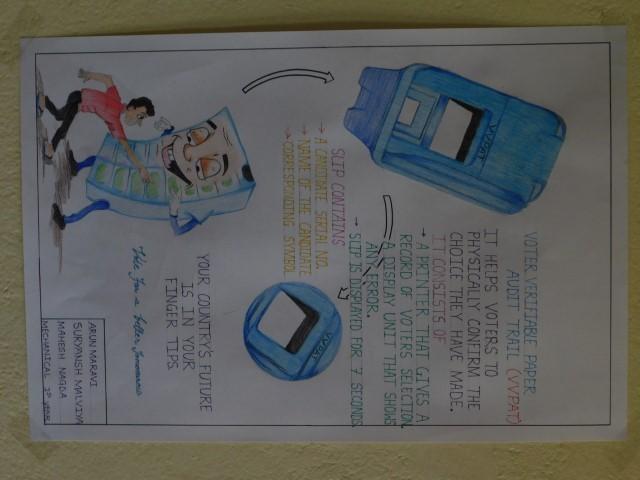 VOTER VERIFIABLE PAPER
AUDIT TRAIL (VVPAT)
IT HELPS VOTERS TO
PHYSICALLY CONFIRM THE
CHOICE THEY HAVE MADE.
IT CONSISTS OF
→ A PRINTER THAT GIVES A
RECORD OF VOTER'S SELECTION
A DISPLAY UNIT THAT SHOWS
ANY ERROR.
→ SLIP IS DISPLAYED FOR 7 SECONDS
VVPAT
SLIP CONTAINS
→ A CANDIDATE SERIAL NO.
→ NAME OF THE CANDIDATE
→ CORRESPONDING SYMBOL
VVPAT
YOUR COUNTRY'S FUTURE
IS IN YOUR
FINGER TIPS.
Vote For a better Tomorrow
ARUN MARAVI
SURYANSH MALVIYA
MAHESH NAGDA
MECHANICAL 2ND YEAR